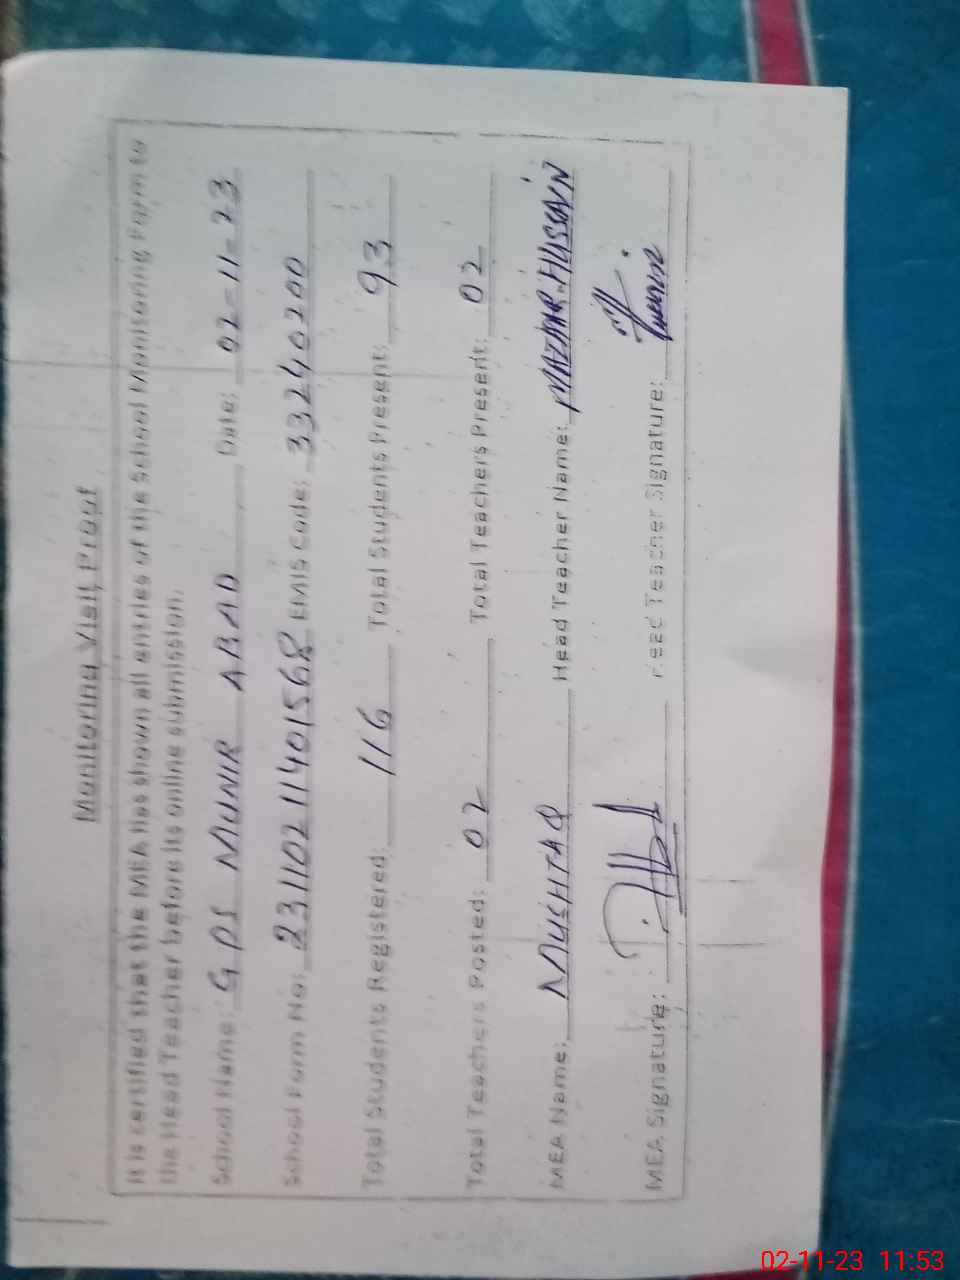 Monitoring Visit Proof
It is certified that the MEA has shown all entries of the School Monitoring Form to
the Head Teacher before its online submission.
School Name: GPS MUNIR ABAD Date: 02-11-23
School Form No: 23110211401568 EMIS Code: 33240200
Total Students Registered: 116 Total Students Present: 93
Total Teachers Posted: 02 Total Teachers Present: 02
MEA Name: MUSHTAQ Head Teacher Name: MAZHAR HUSSAIN
MEA Signature: Head Teacher Signature:
02-11-23 11:53